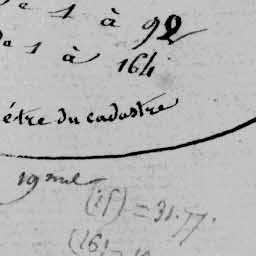 a 1 à 92
a 1 à 164
étre du cadastre
19 mul
(15) = 31.77.
(16) =